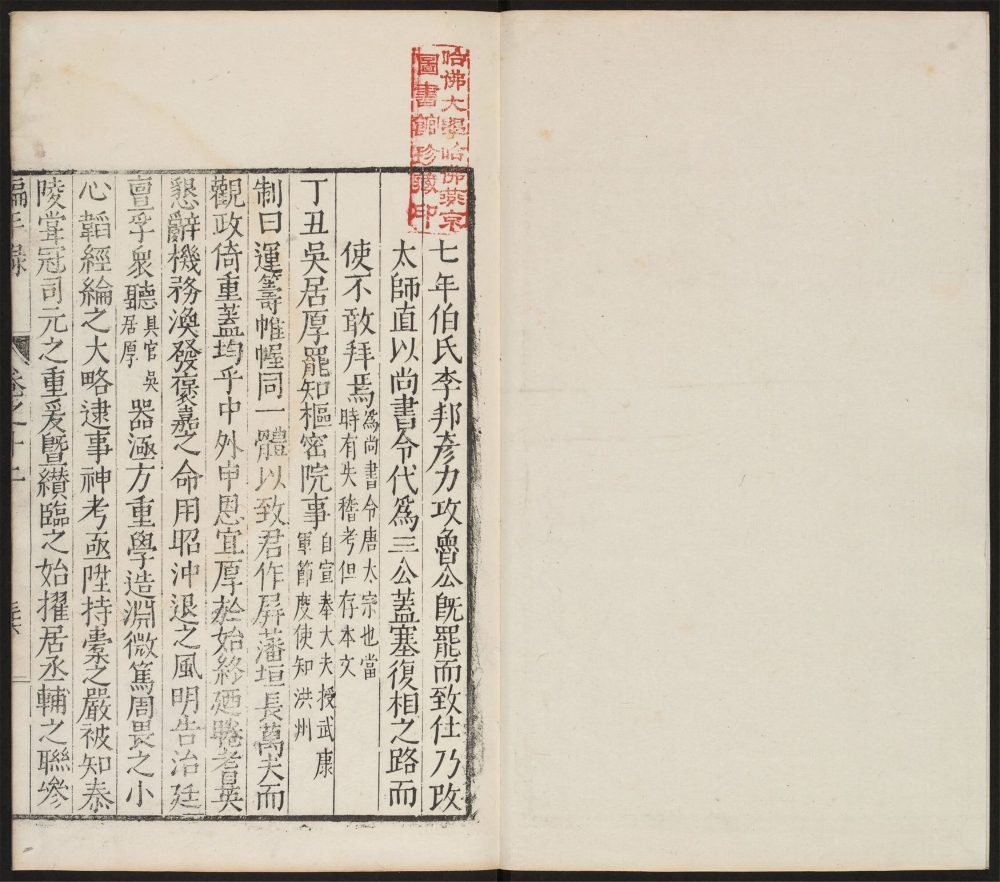 哈佛大學哈佛燕京
圖書館珍藏印
七年伯氏李邦彥力攻魯公旣罷而致仕乃改
太師直以尚書令代爲三公蓋塞復相之路而
使不敢拜焉爲尚書令唐太宗也當
時有失稽考但存本文
丁丑吳居厚罷知樞密院事自宣奉大夫授武康
軍節度使知洪州
制曰運籌帷幄同一體以致君作屏藩垣長萬夫而
觀政倚重蓋均乎中外申恩宜厚於始終廼睠耆英
懇辭機務渙發褒嘉之命用昭沖退之風明告治廷
亶孚衆聽具官吳
居厚器涵方重學造淵微篤周畏之小
心韜經綸之大略逮事神考亟陞持橐之嚴被知泰
陵甞冠司元之重爰曁纘臨之始擢居丞輔之聯叅
編年錄 卷之十二